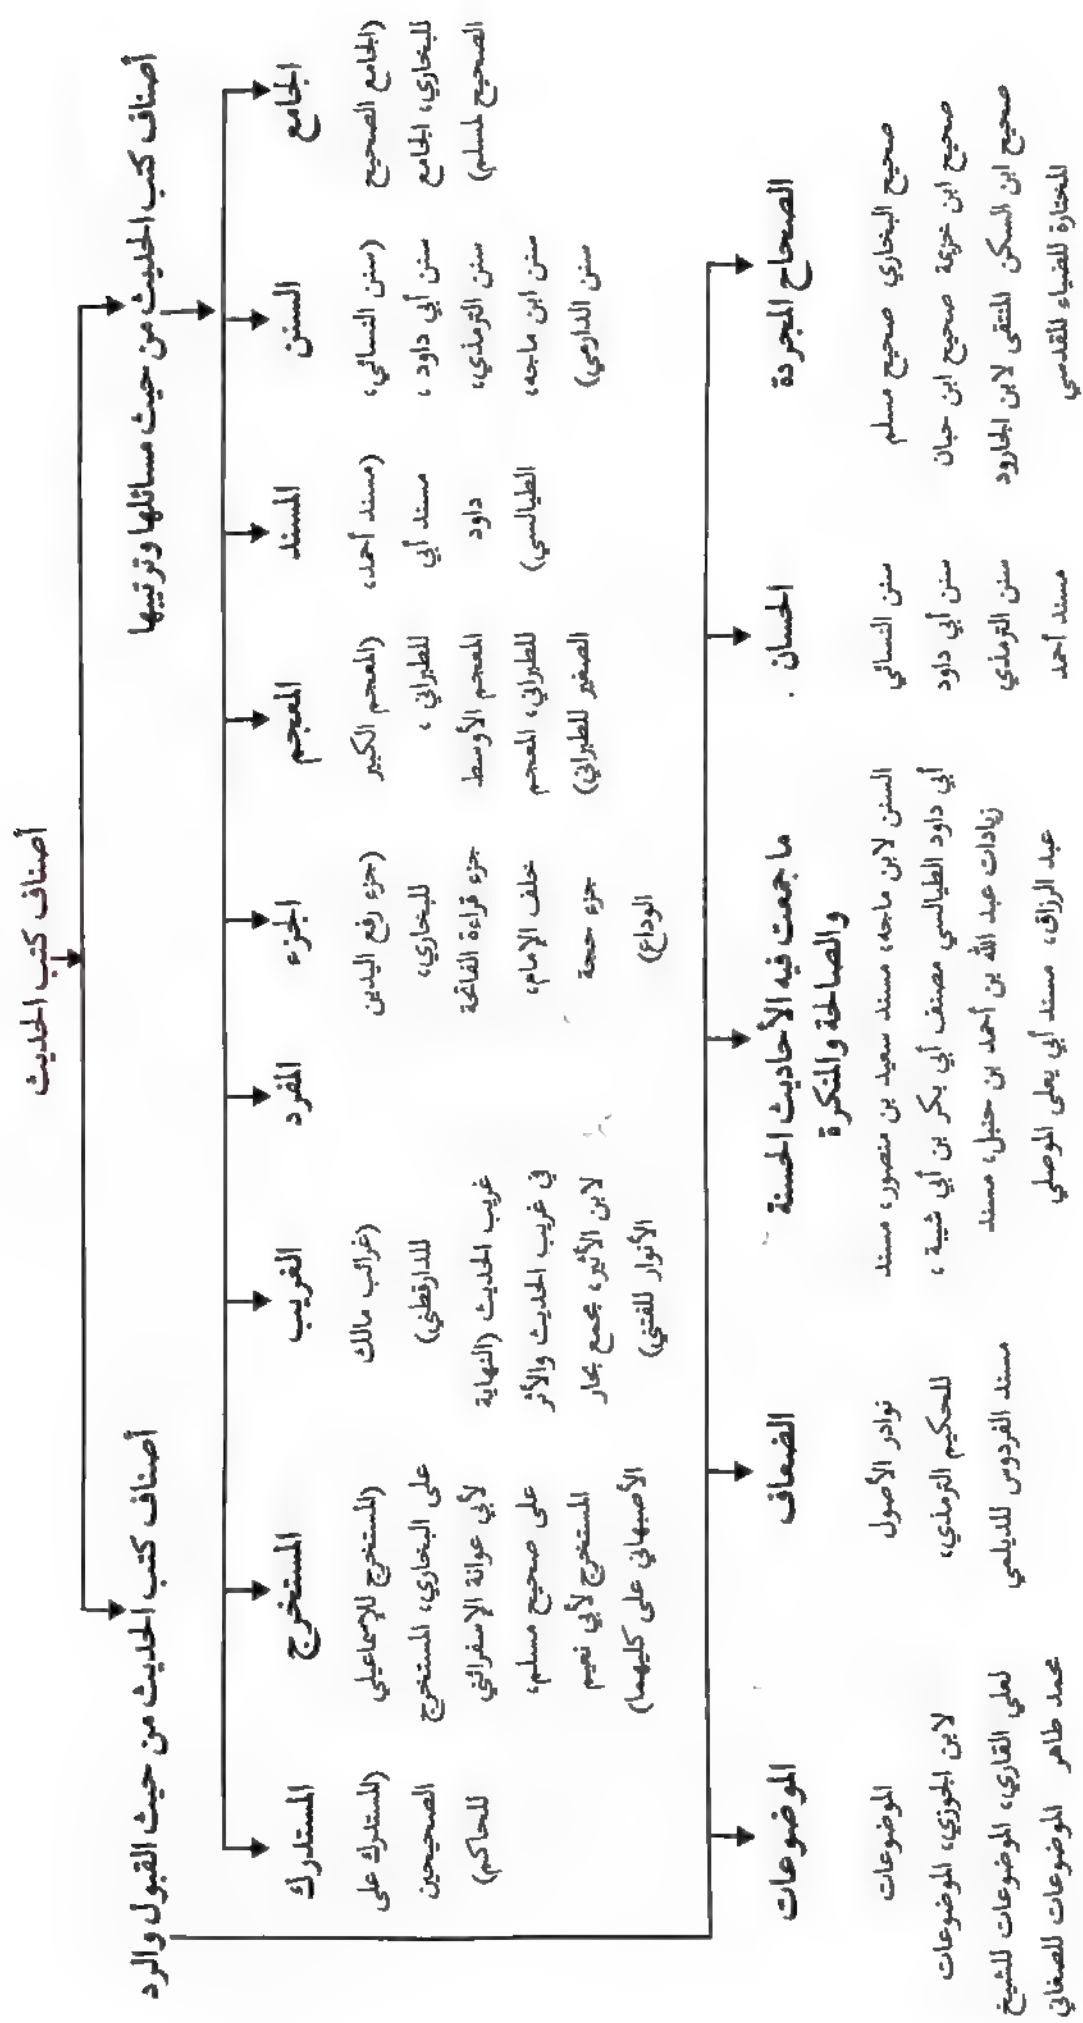 أصناف كتب الحديث
أصناف كتب الحديث من حيث مسائلها وترتيبها
أصناف كتب الحديث من حيث القبول والرد
الجامع
(الجامع الصحيح
للبخاري، الجامع
الصحيح لمسلم)
السنن
(سنن النسائي،
سنن أبي داود ،
سنن الترمذي،
سنن ابن ماجه،
سنن الدارمي)
المسند
(مسند أحمد،
مسند أبي
داود
الطيالسي)
المعجم
(المعجم الكبير
للطبراني ،
المعجم الأوسط
للطبراني، المعجم
الصغير للطبراني)
الجزء
(جزء رفع اليدين
للبخاري،
جزء قراءة الفاتحة
خلف الإمام،
جزء حجة
الوداع)
المفرد
الغريب
(غرائب مالك
للدارقطني)
غريب الحديث (النهاية
في غريب الحديث والأثر
لابن الأثير، مجمع بحار
الأنوار للفتني)
المستخرج
(المستخرج للإسماعيلي
على البخاري، المستخرج
لأبي عوانة الإسفرائني
على صحيح مسلم،
المستخرج لأبي نعيم
الأصبهاني على كليهما)
المستدرك
(المستدرك على
الصحيحين
للحاكم)
الصحاح المجردة
صحيح البخاري صحيح مسلم
صحيح ابن خزيمة صحيح ابن حبان
صحيح ابن السكن المنتقى لابن الجارود
المختارة للضياء المقدسي
الحسان .
سنن النسائي
سنن أبي داود
سنن الترمذي
مسند أحمد
ما جمعت فيه الأحاديث الحسنة
والصالحة والمنكرة
السنن لابن ماجه، مسند سعيد بن منصور، مسند
أبي داود الطيالسي مصنف أبي بكر بن أبي شيبة ،
زيادات عبد الله بن أحمد بن حنبل، مسند
عبد الرزاق، مسند أبي يعلى الموصلي
الضعاف
نوادر الأصول
للحكيم الترمذي،
مسند الفردوس للديلمي
الموضوعات
الموضوعات
لابن الجوزي، الموضوعات
لعلي القاري، الموضوعات للشيخ
محمد طاهر الموضوعات للصغاني